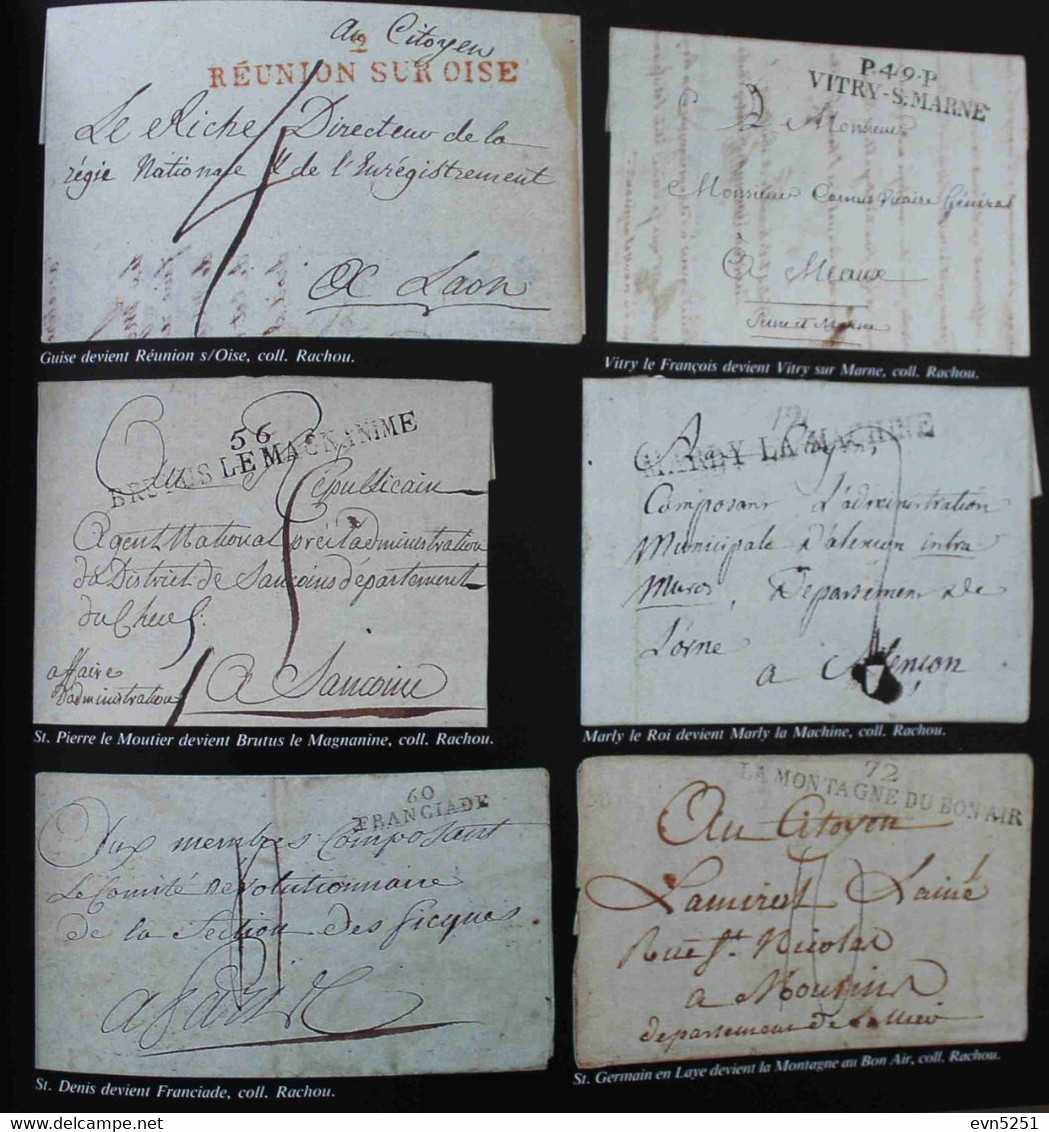 Au Citoyen
2
RÉUNION SUR OISE
Le Riche Directeur de la
régie Nationale de l'Enrégistrement
A Laon
Guise devient Réunion s/Oise, coll. Rachou.
P.4.9.P
VITRY-S-MARNE
A Monsieur
Monsieur Camus Vicaire Général
A Meaux
Seine et Marne
Vitry le François devient Vitry sur Marne, coll. Rachou.
56
BRUTUS LE MAGNANIME
Au Republicain
Agent National près l'administration
du District de Sancoins département
du Cher
affaire
d'administration
A Sancoins
St. Pierre le Moutier devient Brutus le Magnanine, coll. Rachou.
MARLY LA MACHINE
Composans L'administration
Municipale d'alençon intra
Muros, Departement de
L'orne
a Alençon
Marly le Roi devient Marly la Machine, coll. Rachou.
60
FRANCIADE
Aux membres Composant
Le Comité revolutionnaire
de la Section des
a Paris
St. Denis devient Franciade, coll. Rachou.
72
LA MONTAGNE DU BON AIR
Au Citoyen
Lainé
Rue St. Nicolas
a Moulins
departement de
St. Germain en Laye devient la Montagne au Bon Air, coll. Rachou.
evn5251